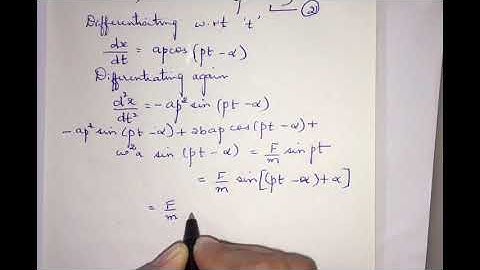 ②
Differentiating w.r.t 't'
dx/dt = ap cos (pt - α)
Differentiating again
d²x/dt² = -ap² sin (pt - α)
-ap² sin (pt - α) + 2bap cos (pt - α) +
ω²a sin (pt - α) = F/m sin pt
= F/m sin [(pt - α) + α]
= F/m